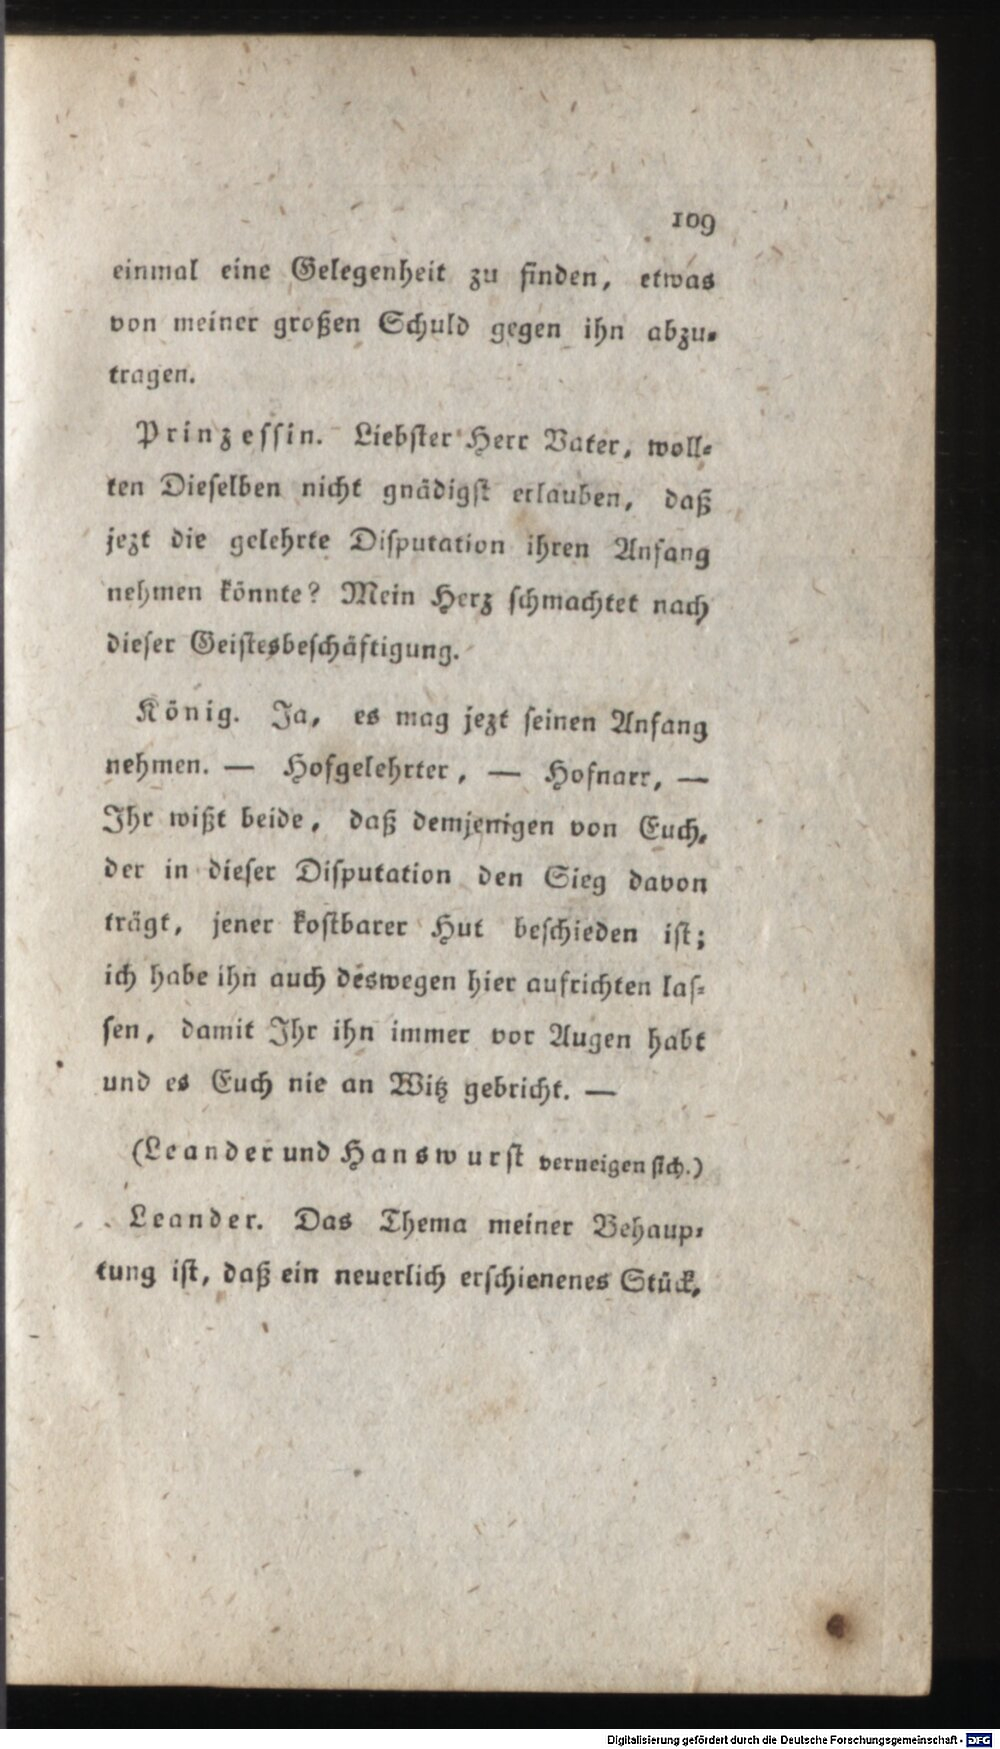 109
einmal eine Gelegenheit zu finden, etwas
von meiner großen Schuld gegen ihn abzu-
tragen.
Prinzeſſin. Liebſter Herr Vater, woll-
ten Dieſelben nicht gnädigſt erlauben, daß
jezt die gelehrte Diſputation ihren Anfang
nehmen könnte? Mein Herz ſchmachtet nach
dieſer Geiſtesbeſchäftigung.
König. Ja, es mag jezt ſeinen Anfang
nehmen. — Hofgelehrter, — Hofnarr, —
Ihr wißt beide, daß demjenigen von Euch,
der in dieſer Diſputation den Sieg davon
trägt, jener koſtbarer Hut beſchieden iſt;
ich habe ihn auch deswegen hier aufrichten laſ-
ſen, damit Ihr ihn immer vor Augen habt
und es Euch nie an Witz gebricht. —
(Leander und Hanswurſt verneigen ſich.)
Leander. Das Thema meiner Behaup-
tung iſt, daß ein neuerlich erſchienenes Stück,
Digitalisierung gefördert durch die Deutsche Forschungsgemeinschaft - DFG